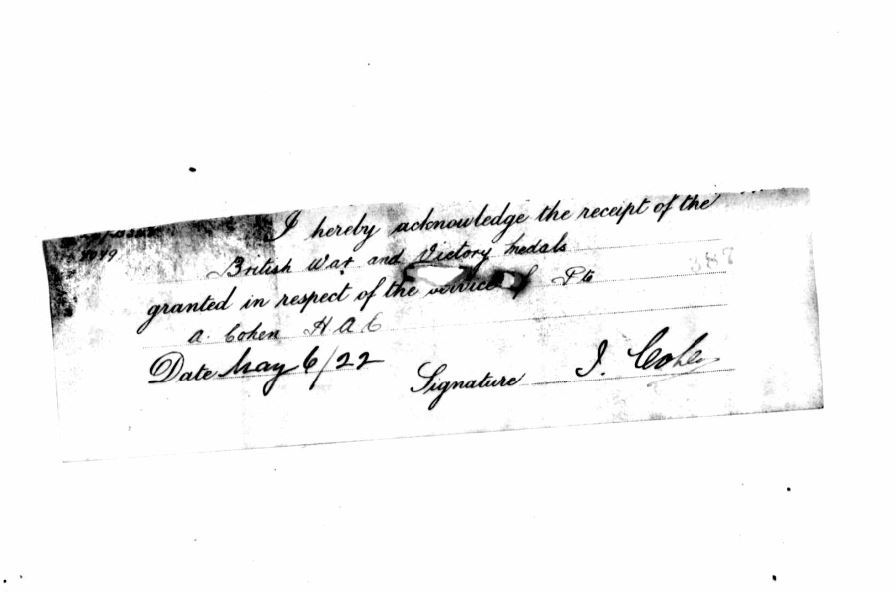 I hereby acknowledge the receipt of the
8049
British War and Victory medals
387
granted in respect of the service of Pte
A. Cohen H A C
Date May 6/22
Signature I. Cohen